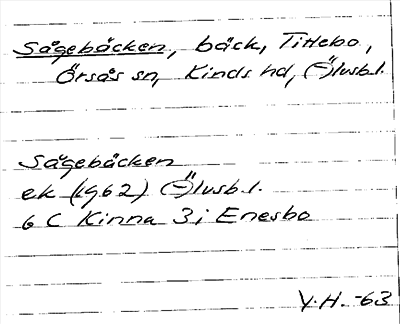 Sågebäcken, bäck, Tittebo,
Örsås sn, Kinds hd, Älvsb.l.
Sågebäcken
ek (1962) Älvsb.l.
6 C Kinna 3i Enesbo
V.H. -63